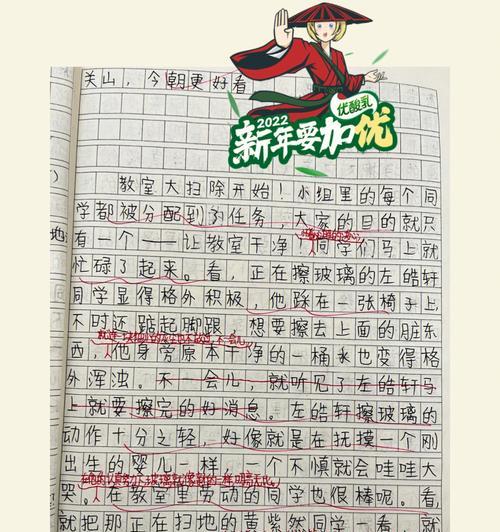 关山，今朝更好看
优酸乳
2022
新年要加优
教室大扫除开始！小组里的每个同
学都被分配到了任务，大家的目的就只
有一个——让教室干净！同学们马上就
忙碌了起来。看，正在擦玻璃的左皓轩
同学显得格外积极，他踩在一张椅子上，
不时还踮起脚跟，想要擦去上面的脏东
西，他身旁原本干净的一桶水也变得格
外浑浊。不一会儿，就听见了左皓轩马
上就要擦完的好消息。左皓轩擦玻璃的
动作十分之轻，好像就是在抚摸一个刚
出生的婴儿一样，一个不慎就会哇哇大
哭。在教室里劳动的同学也很棒呢。看，
就把那正在扫地的黄紫然同学